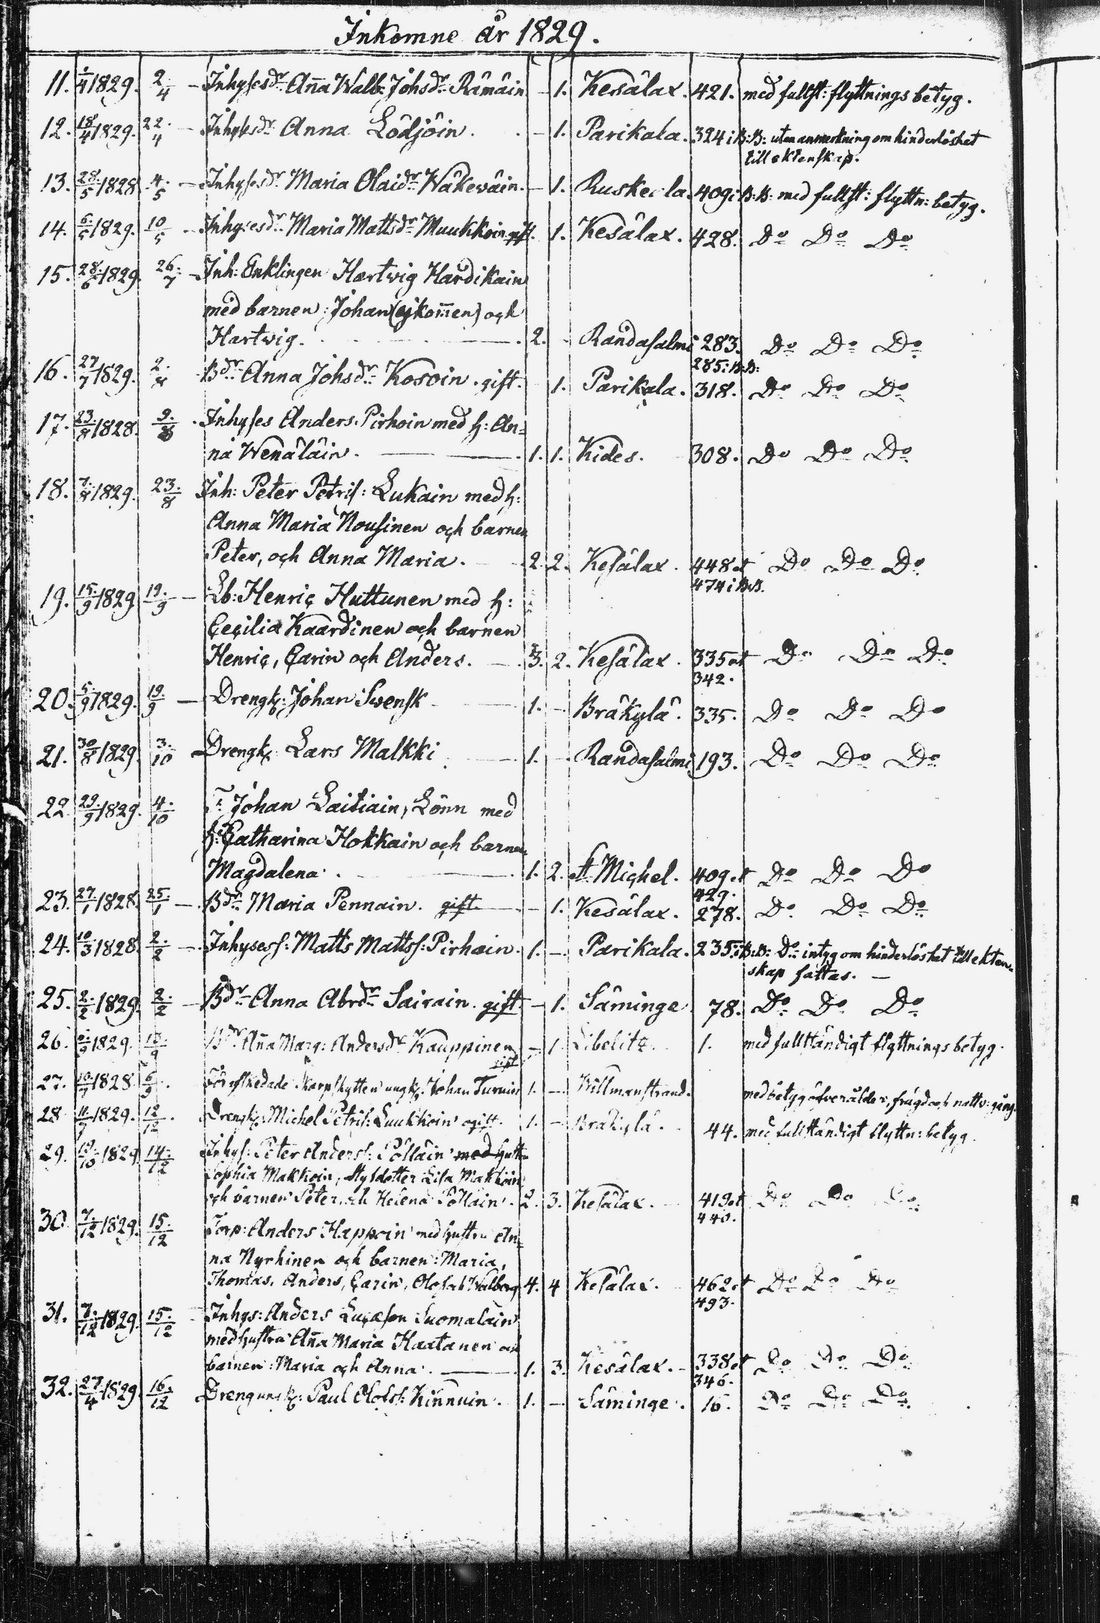 Inkomne år 1829.
11. 1/4 1829. 2/4 — Inhysesdr. Aña Walb: Johsdr. Rämäin — 1. Kesälax. 421. med fullst: flyttnings betyg.
12. 18/4 1829. 22/4 — Inhysesdr Anna Lödjöin. — 1. Parikala. 324 i B:B: utan anmerkning om hinderlöshet
till ektenskap.
13. 28/5 1828 4/5 — Inhysesdr. Maria Olaidr. Wäkewäin. — 1. Ruskeala 409 i B:B: med fullst: flyttn: betyg.
14. 5/5 1829. 10/5 — Inhysesdr. Maria Mattsdr. Muukkoin gift. 1. Kesälax. 428. Do Do Do
15. 28/6 1829. 26/7 — Inh: Enklingen Hartwig Hardikain
med barnen: Johan (ej komen) och
Hartwig. 2. — Randasalmi 283. Do Do Do
285: B:B:
16. 27/7 1829. 2/8 — Bdr. Anna Johsdr. Kosoin. gift. — 1. Parikala. 318. Do Do Do
17. 23/8 1828. 9/8 Inhyses Anders Pirhoin med h: An-
na Wenäläin. 1. 1. Kides. 308. Do Do Do
18. 7/8 1829. 23/8 Inh: Peter Petris: Lukain med h:
Anna Maria Nousinen och barnen
Peter, och Anna Maria. 2. 2. Kesälax 448 et Do Do Do
474 i B.B.
19. 15/9 1829 19/9 — Lb: Henric Huttunen med h:
Cecilia Kaardinen och barnen
Henric, Carin och Anders. 3. 2. Kesälax. 335 et Do Do Do
342.
20. 5/9 1829. 19/9 — Drengk: Johan Swensk 1. — Bräkylä. 335. Do Do Do
21. 30/8 1829. 3/10 Drengk: Lars Malkki 1. — Randasalmi 193. Do Do Do
22. 29/9 1829. 4/10 Johan Laitiain, Lönn med
h: Catharina Hokkain och barnen
Magdalena. 1. 2. St Michel. 409 et Do Do Do
429.
23. 27/1 1828. 25/1 — Bdr. Maria Pennain. gift — 1. Kesälax. 278. Do Do Do
24. 10/3 1828 2/2 — Inhysess. Matts Mattss. Pirhoin. 1. — Parikala. 235: B:B: Do intyg om hinderlöshet till ekten-
skap fattas. —
25. 2/2 1829. 2/2 — Bdr. Anna Abrdr. Sairain. gift — 1. Säminge 78. Do Do Do
26. 1829. Bdr. Aña Marg: Andersdr. Kauppinen — 1. Libelitz. 1. med fullständigt flyttnings betyg.
gift
27. 1828 Förafskedade Skarpskytten ungk: Johan Turuin 1. — Willmanstrand. med betyg öfver ålder, frägd och nattv: gång.
28 1829. 12/12 Drengk: Michel Petris: Luukkoin ogift. 1. — Bräkylä. 44. med fullständigt flyttn: betyg.
29. 1829 14/12 Inhys: Peter Anders: Pöllain med hustru
Sophia Makkoin, styfdotter Lisa Makkoin
och barnen Peter och Helena Pöllain. 2. 3. Kesälax. 419 et Do Do Do
440.
30. 7/12 1829. 15/12 Torp: Anders Happoin med hustru An-
na Nyrhinen och barnen: Maria,
Thomas, Anders, Carin, Olof och Walborg 4. 4 Kesälax. 462 et Do Do Do
493.
31. 7/12 1829. 15/12 Inhys: Anders Lucasson Suomalain
med hustru Aña Maria Haatanen och
barnen: Maria och Anna. 1. 3. Kesälax. 338 et Do Do Do
346.
32. 27/4 1829 16/12 Dreng ungk: Paul Olofs: Kinnuin. 1. — Säminge. 16. Do Do Do.